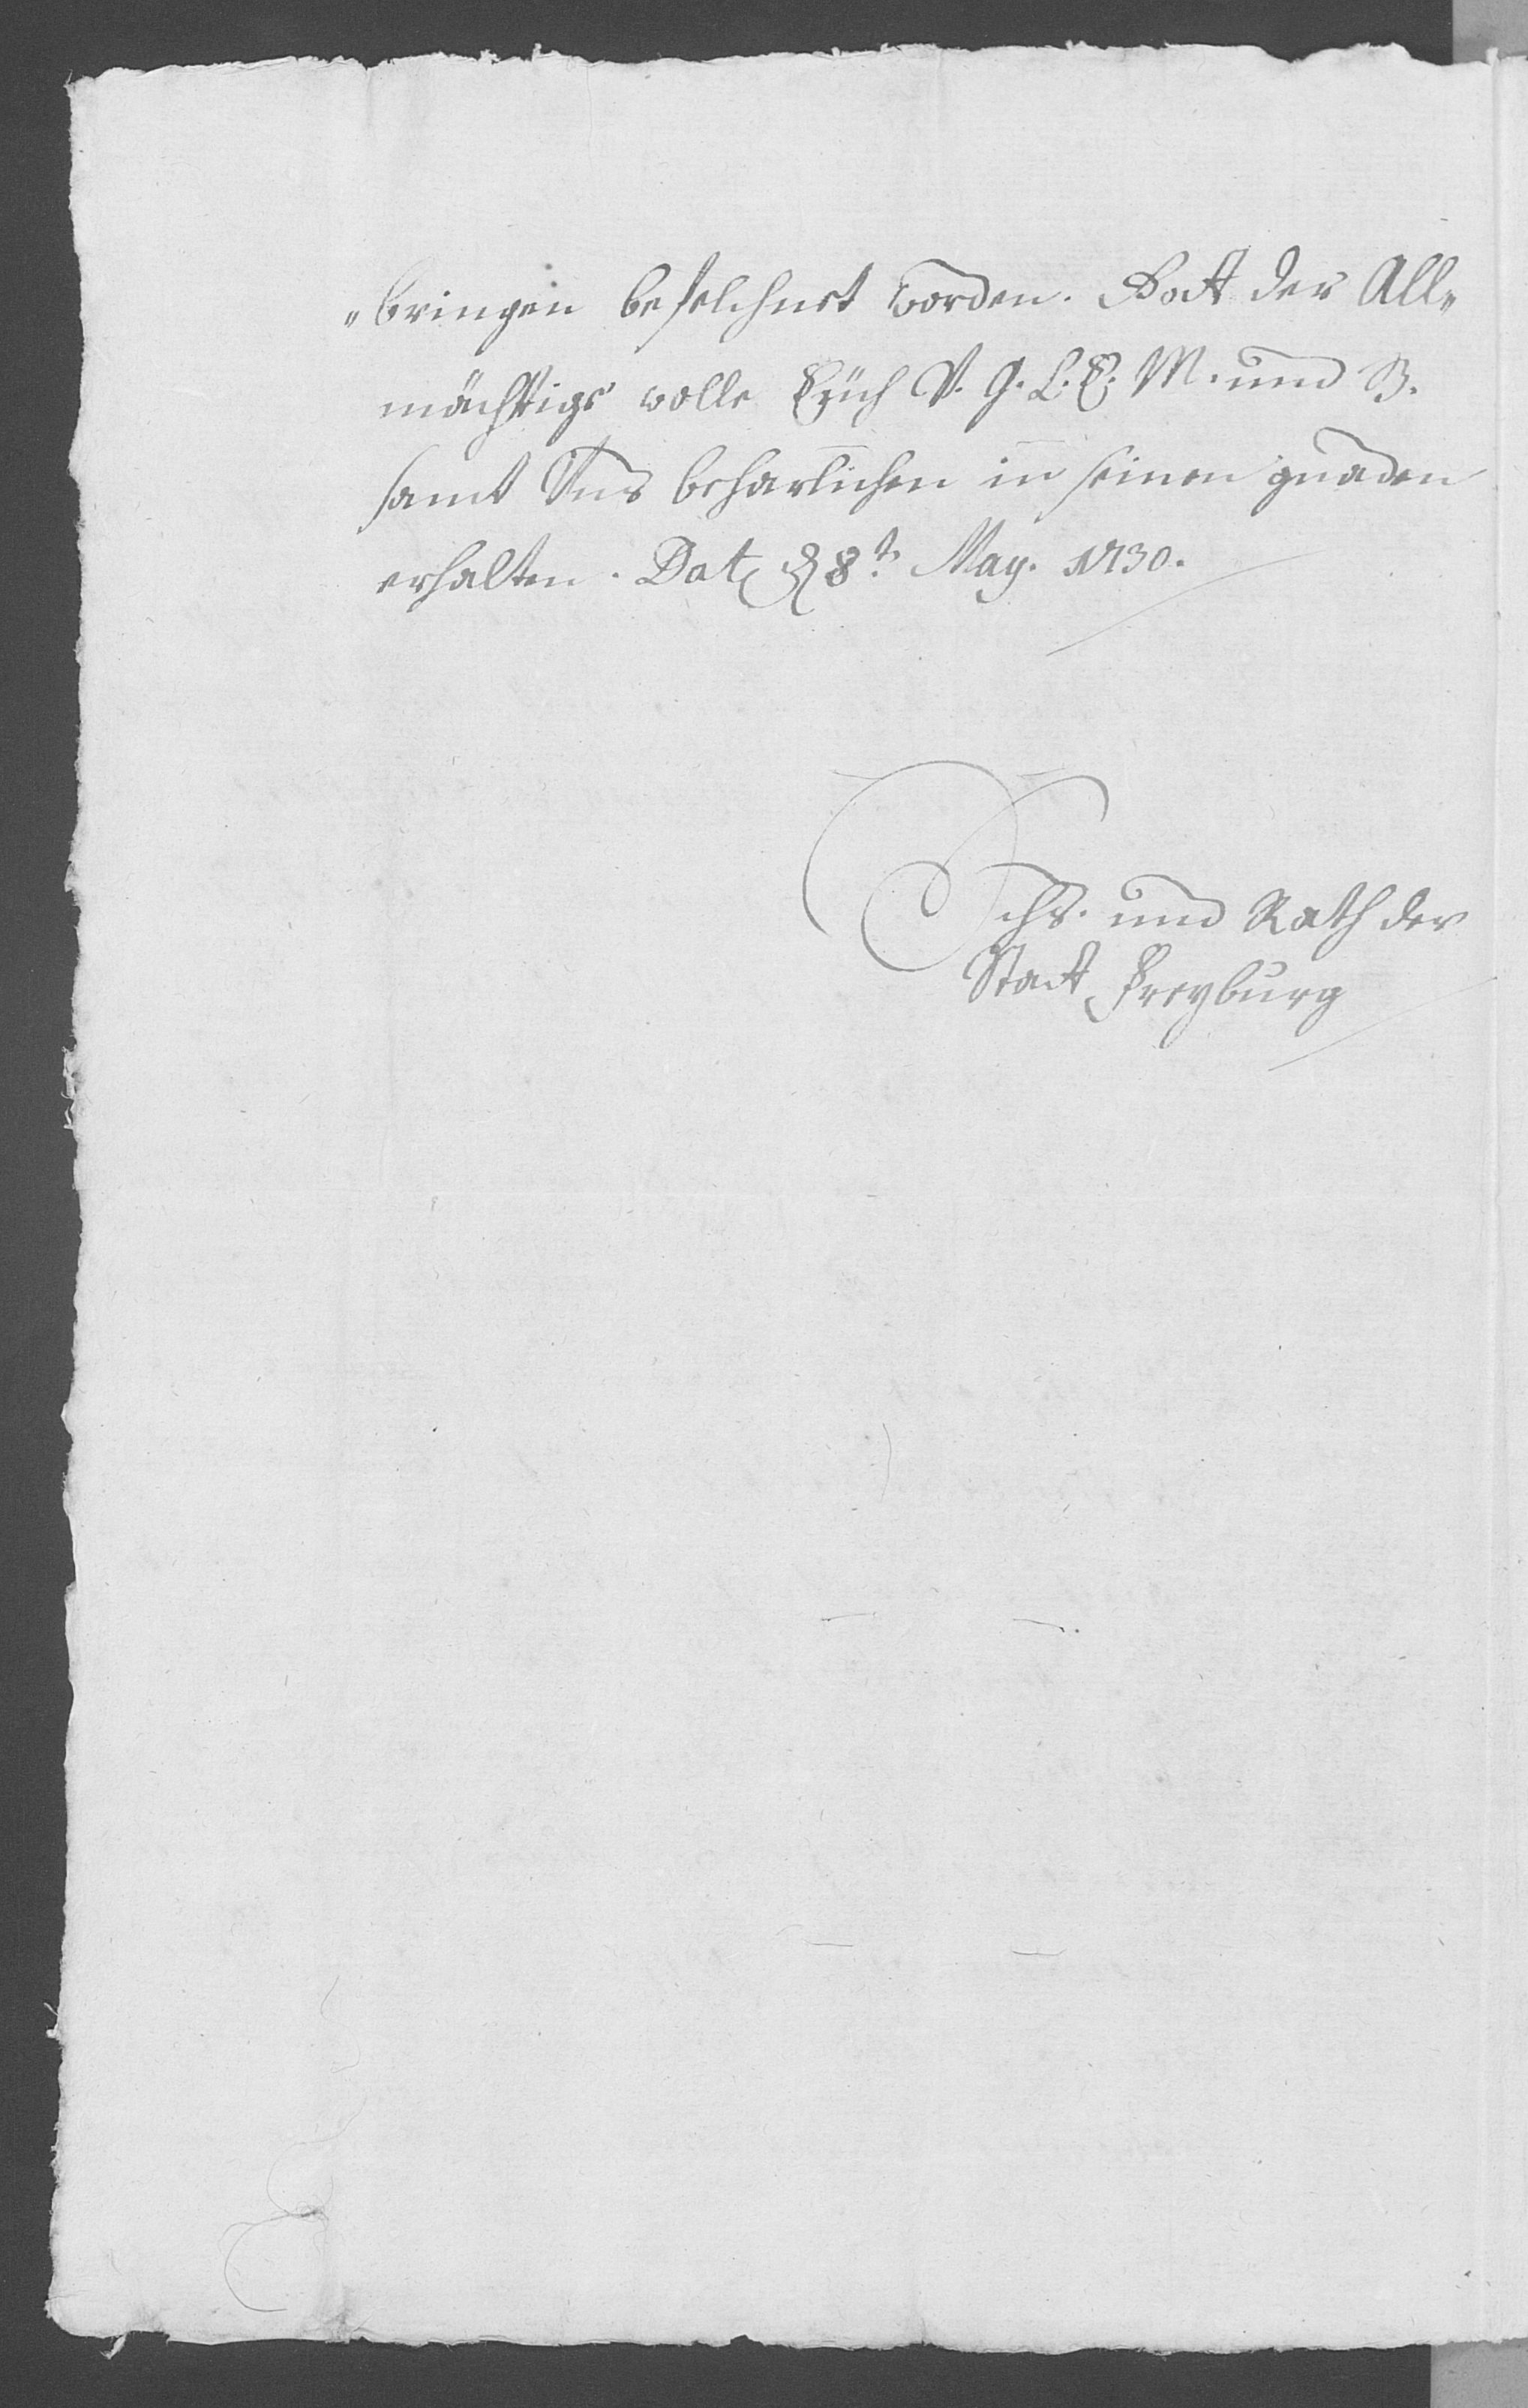 „bringen befelchnet worden. Gott der All„
mächtige wolle Eüch V. G. L. E. M. und B.
samt Uns beharlichen in seinen gnaden
erhalten. Dat. d. 8t. May. 1730.
Schs. und Rath der
Statt Freyburg